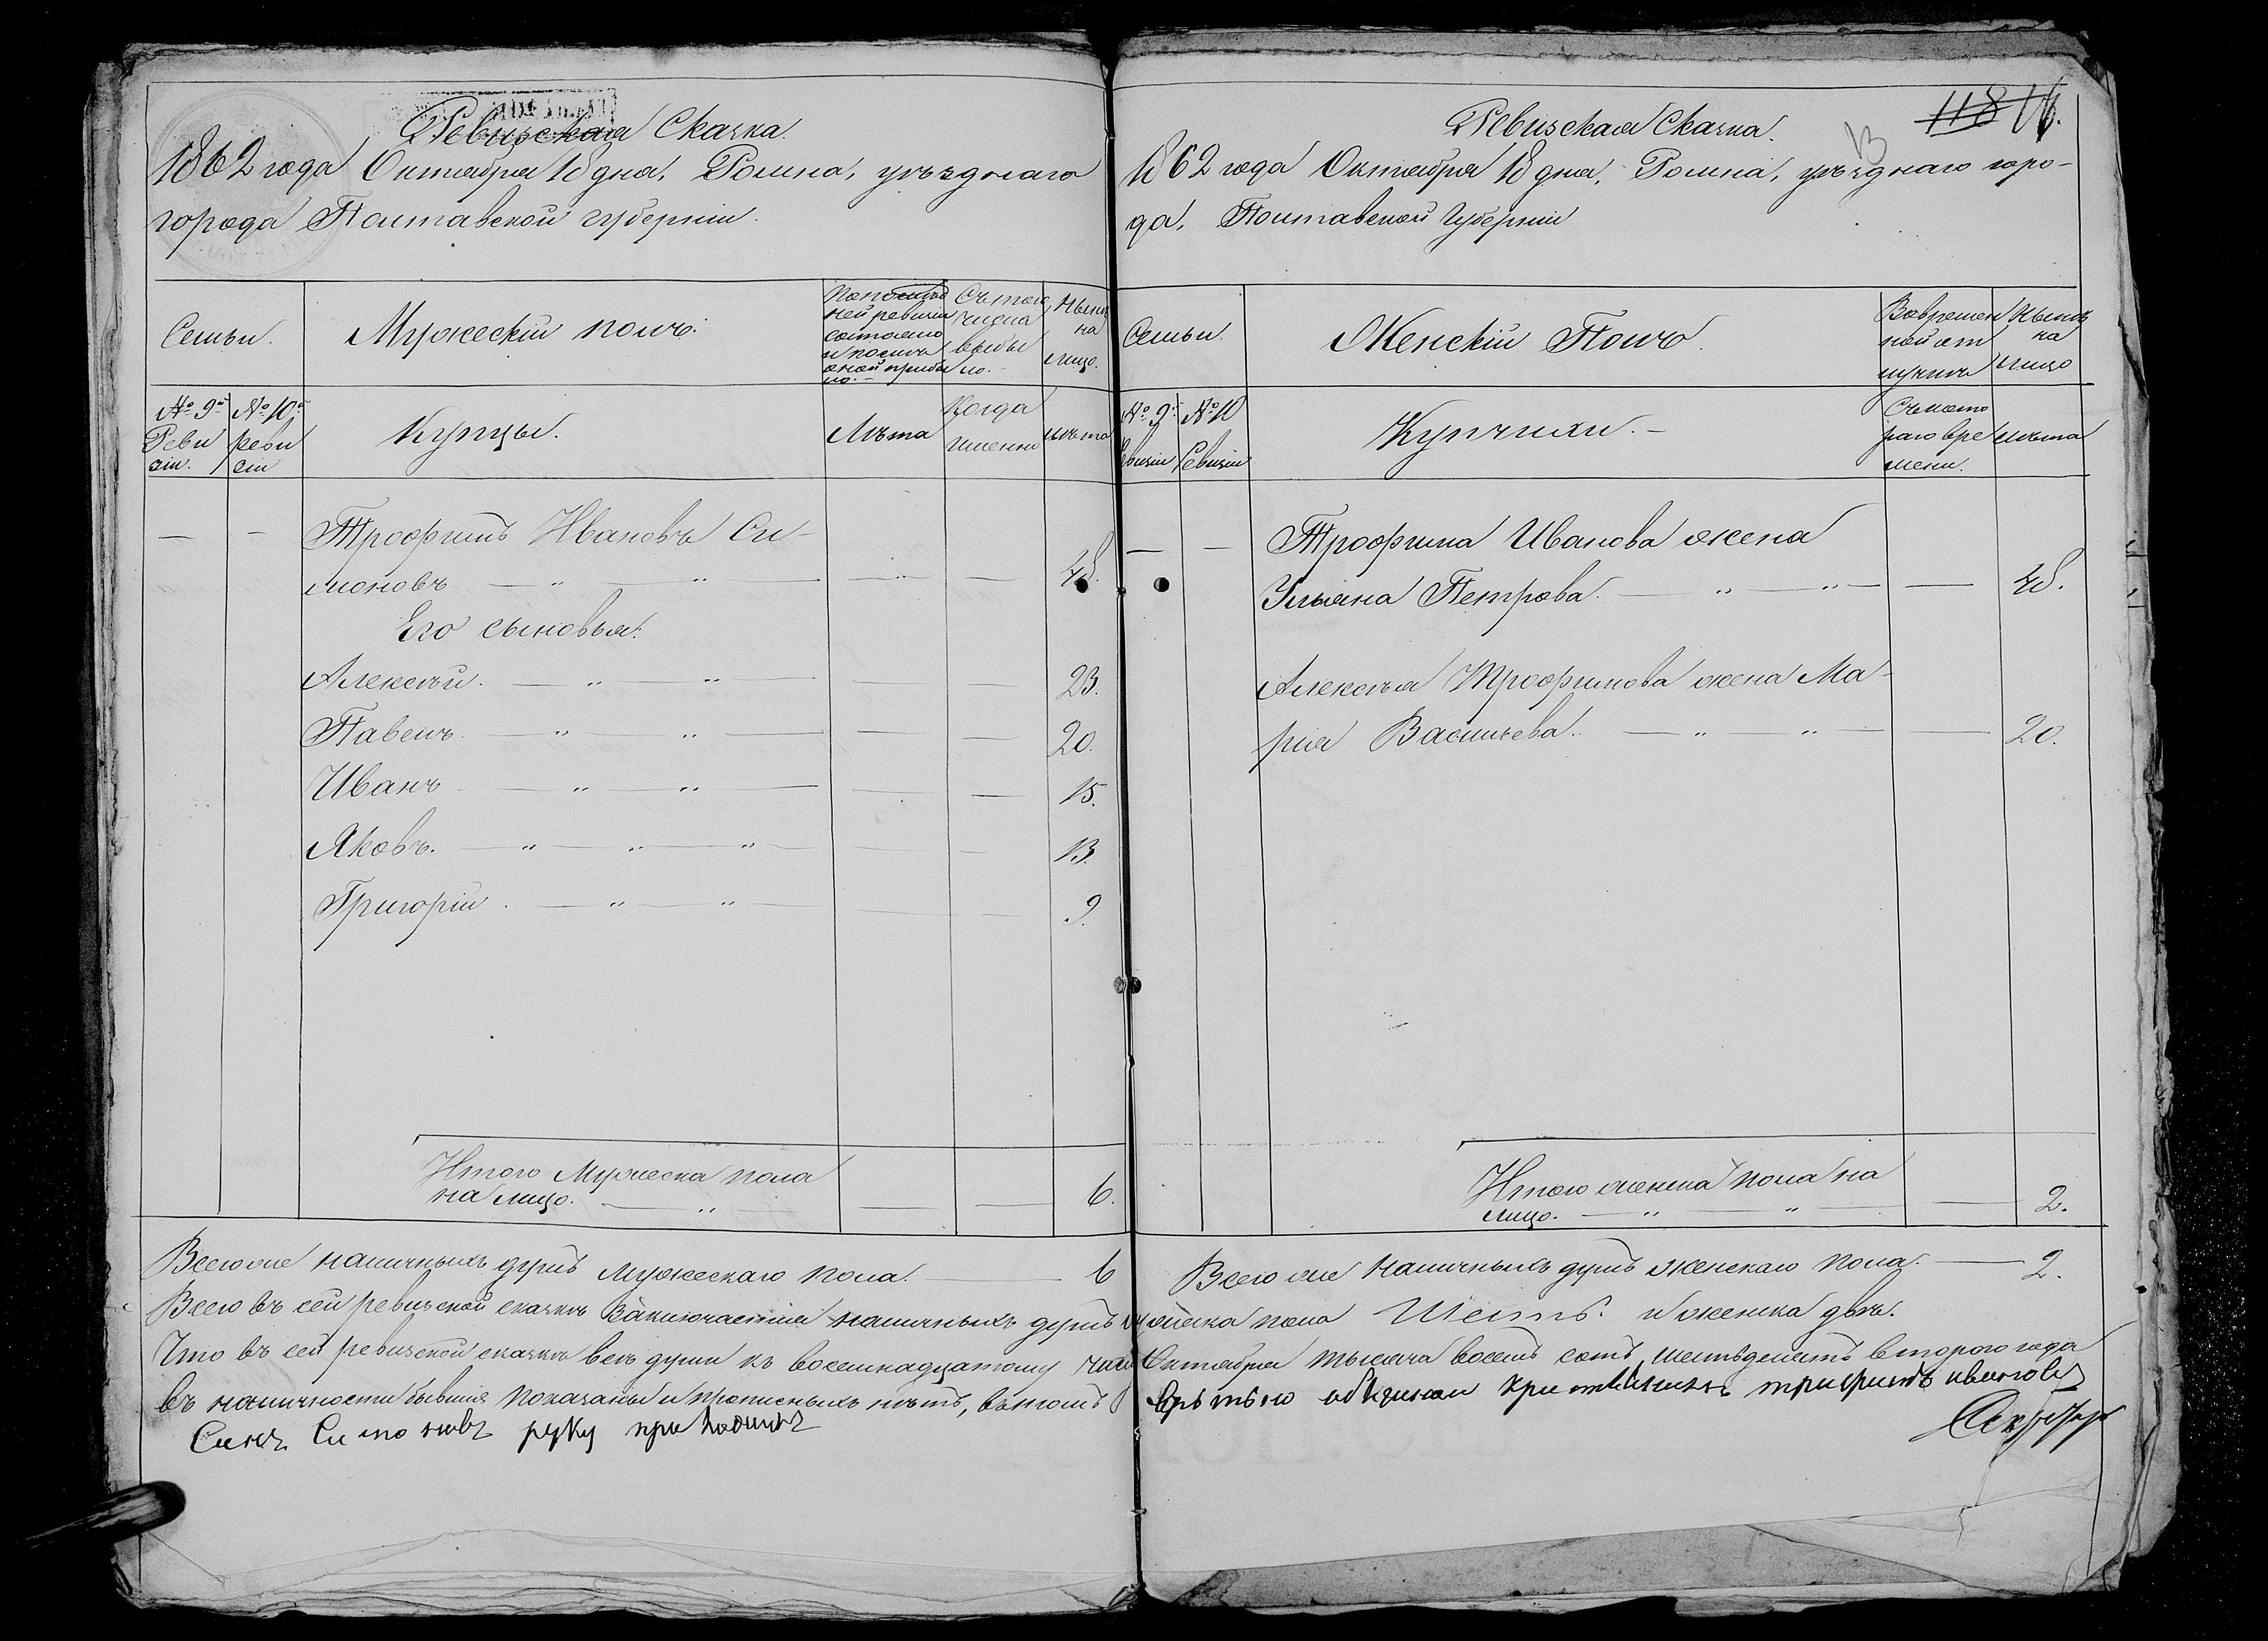 Ревизская Сказка.
1862 года Октября 18 дня, Ромна, уѣзднаго
города Полтавской губерніи.
Семьи.
Мужескій полъ.
По послѣд
ней ревизіи
состояло
и послѣ
оной прибы
ло.
Съ того
числа
выбы
ло.
Нынѣ
на
лицо.
№ 9й
Реви
зіи.
№ 10й
реви
зіи
Купцы.
Лѣта
Когда
именно
лѣта
Трофимъ Ивановъ Си-
моновъ 48.
Его сыновья:
Алексѣй. 23.
Павелъ. 20.
Иванъ 15.
Яковъ. 13.
Григорій. 9.
Итого Мужеска пола
на лицо. 6.
Всего же наличныхъ душъ мужескаго пола. 6
Всего въ сей ревизской сказкѣ заключается наличныхъ душъ
Что въ сей ревизской сказкѣ всѣ души къ восемнадцатому
въ наличности бывшія показаны и прописныхъ нѣтъ, въ томъ
Симоновъ руку приложилъ
118 16.
13
Ревизская Сказка.
1862 года Октября 18 дня, Ромна, уѣзднаго горо-
да, Полтавской Губерніи
Семьи.
Женскій Полъ.
Во времен
ной от
лучкѣ
Нынѣ
на
лицо
№ 9й
Ревизіи
№ 10
Ревизіи
Купчихи.
Съ кото
раго вре
мени.
лѣта
Трофима Иванова жена
Ульяна Петрова. 48.
Алексѣя Трофимова жена Ма-
рія Васильева. 20.
Итого женска пола на
лицо. 2.
Всего же наличныхъ душъ женскаго пола. 2.
мужеска пола Шесть. и женска двѣ.
Октября тысяча восемь сотъ шестьдесятъ втораго года
ивановъ